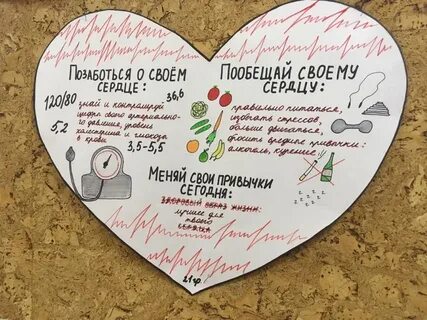 Позаботься о своём
сердце:
120/80
36,6
5,2
знай и контролируй
цифры своего артериально-
го давления, уровень
холестерина и глюкозы
в крови
3,5-5,5
Пообещай своему
сердцу:
правильно питаться,
избегать стрессов,
больше двигаться,
бросить вредные привычки:
алкоголь, курение!!
Меняй свои привычки
сегодня:
здоровый образ жизни:
лучшее для
твоего
сердца
21 гр.